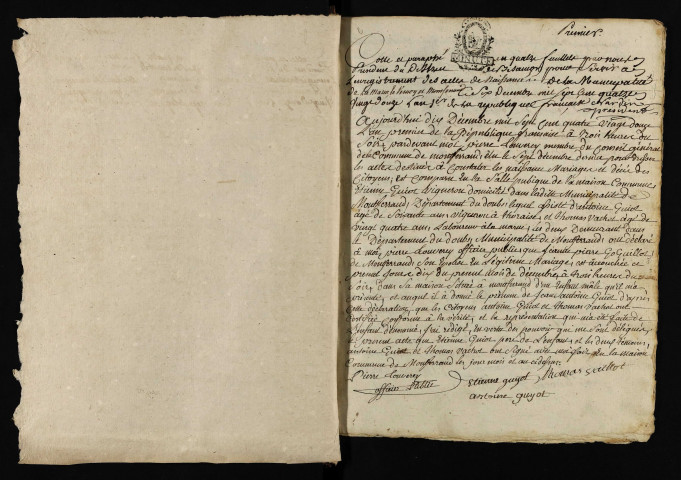 Premier
Cotte et paraphé en quatre feuillets par nous
President du District de Besançon pour servir à
L'enregistrement des actes de Naissance de la Municipalité
de la
Six Decembre mil sept cent quatre
Vingt douze L'an 1er de la republique francaise
president
Aujourdhui dix Décembre mil Sept cent quatre vingt douze
L'an premier de la République française à trois heures du
Soir, pardevant moi pierre Louvrey membre du conseil général
de la Commune de montferrand élu le Sept décembre dernier pour rediger
les actes destinés à constater les naissances Mariages et décès des
Citoyens, est comparu en la Salle publique de la maison commune
Etienne Guiot vigneron domicilié dans ladite Municipalité de
Montferrand, Département du doubs lequel assisté d'antoine Guiot
âgé de Soixante ans vigneron à thoraise, et thomas vachot âgé de
vingt quatre ans Laboureur à la marne, les deux Demeurant dans
le Département du doubs Municipalité de Montferrand ont déclaré
à moi, pierre Louvrey officier public, que
de Montferrand, Son épouse en Légitime Mariage, est accouchée ce
présent jour dix du present Mois de décembre à trois heures du
Soir, dans sa maison située à montferrand d'un Enfant mâle qu'il m'a
présenté, et auquel il a donné le prénom de Jean antoine Guiot d'après
cette déclaration, que les Citoyens antoine Guiot et thomas vachot ont
conforme à la vérité, et la représentation qui m'a été faite de
l'enfant dénommé, j'ai rédigé, en vertu des pouvoirs qui me sont délégués,
le présent acte, que Etienne Guiot pere de l'enfant, et les deux témoins,
antoine Guiot et thomas vachot ont Signé avec moi, fait en la maison
Commune de Montferrand les jour mois et an cidessus
Pierre Louvrey
officier Public
etienne guyot
thomas
antoine guyot